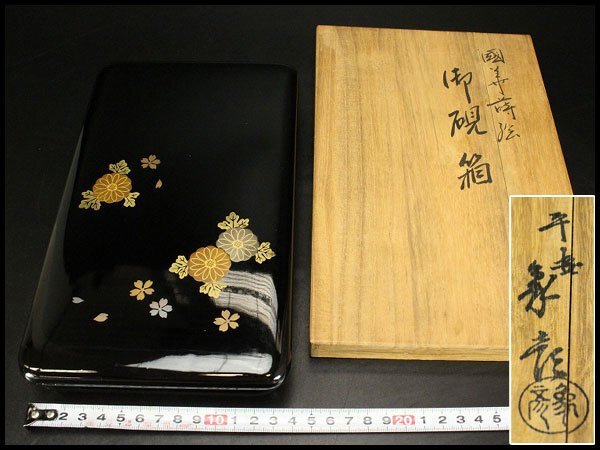 國華蒔絵
御硯箱
平安
象彦
象彦
2 3 4 5 6 7 8 9 10 1 2 3 4 5 6 7 8 9 20 1 2 3 4 5